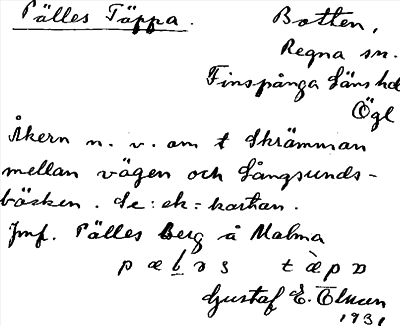 Pälles Täppa.
Botten,
Regna sn.
Finspånga läns hd
Ögl
Åkern n. v. om t Skrämman
mellan vägen och Långsunds-
bäcken. Se: ek: kartan.
Jmf. Pälles Berg å Malma
Gustaf E.
1931